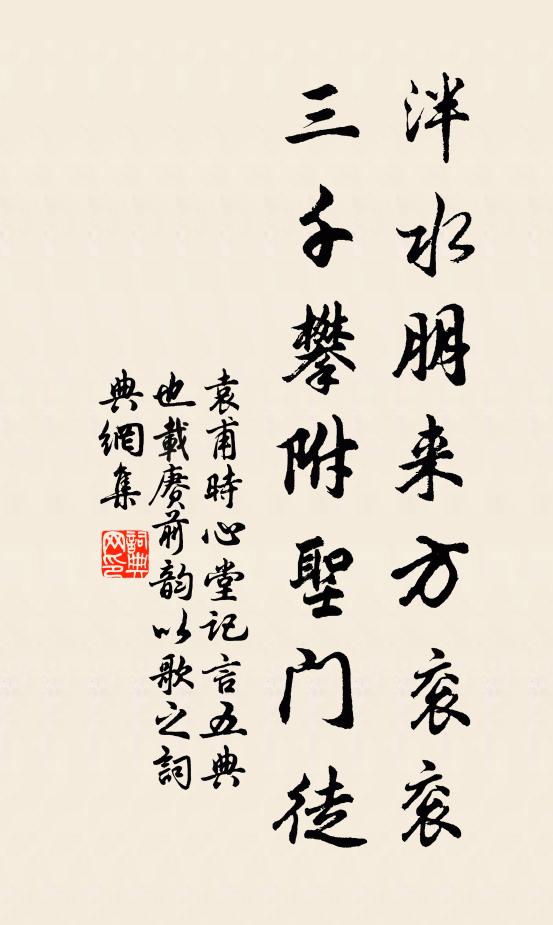 泮水朋来方衮衮
三千攀附聖门徒
袁甫時心堂记言五典
也載赓前韵以歌之詞
典網集
詞典网印